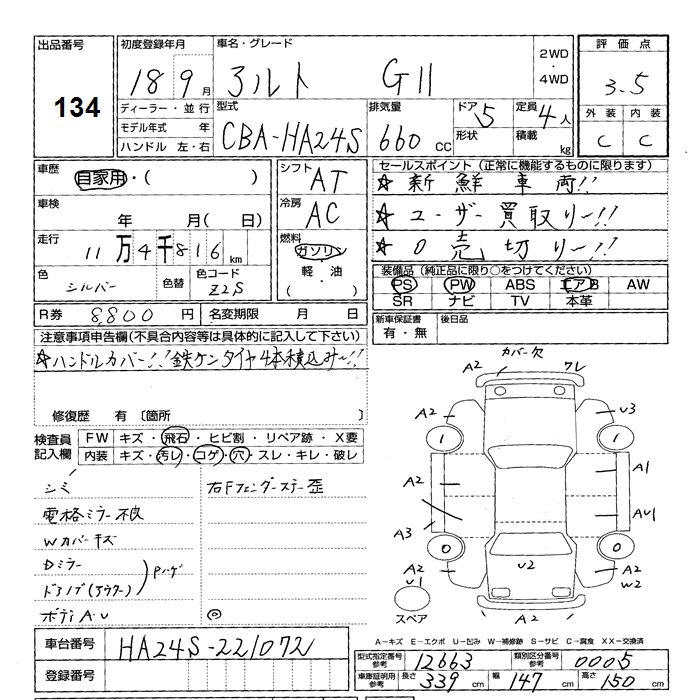 出品番号
134
初度登録年月
18 9 月
車名・グレード
アルト GII
2WD
・
4WD
評価点
3.5
外装 内装
C C
ディーラー・並行
モデル年式 年
ハンドル 左・右
型式
CBA-HA24S
排気量
660 CC
ドア 5
形状
定員 4 人
積載 kg
車歴
自家用・( )
車検
年 月( 日)
走行
11万4千816 km
色
シルバー
色替
色コード
Z2S
シフト
AT
冷房
AC
燃料
ガソリン
軽・油
( )
セールスポイント(正常に機能するものに限ります)
☆ 新鮮車両!!
☆ ユーザー買取りー!!
☆ 0売切りー!!
装備品(純正品に限り○をつけてください)
PS PW ABS エアB AW
SR ナビ TV 本革
R券 8,800 円
名変期限 月 日
新車保証書
有・無
後日品
注意事項申告欄(不具合内容等は具体的に記入して下さい)
☆ハンドルカバー!! 鉄ケンタイヤ4本積込みー!!
修復歴 有〔箇所
検査員
記入欄
FW キズ・飛石・ヒビ割・リペア跡・X要
内装 キズ・汚レ・コゲ・穴・スレ・キレ・破レ
シミ
電格ミラー不良
Wカバーキズ
Dミラー
ドアノブ(アウター)
Pハゲ
ボディA・U
右Fフェンダーステー歪
◎
カバー欠
A2 ワレ
A2 U3
1 1
A2 A1
AU1
A3
0 0
A2 U2 A2
U1 W2
スペア
A2 A2
A-キズ E-エクボ U-凹み W-補修跡 S-サビ C-腐食 XX-交換済
車台番号 HA24S-221072
登録番号
型式指定番号
参考
12663
類別区分番号
参考
0005
車庫証明用
参考
長さ 339 cm
幅 147 cm
高さ 150 cm